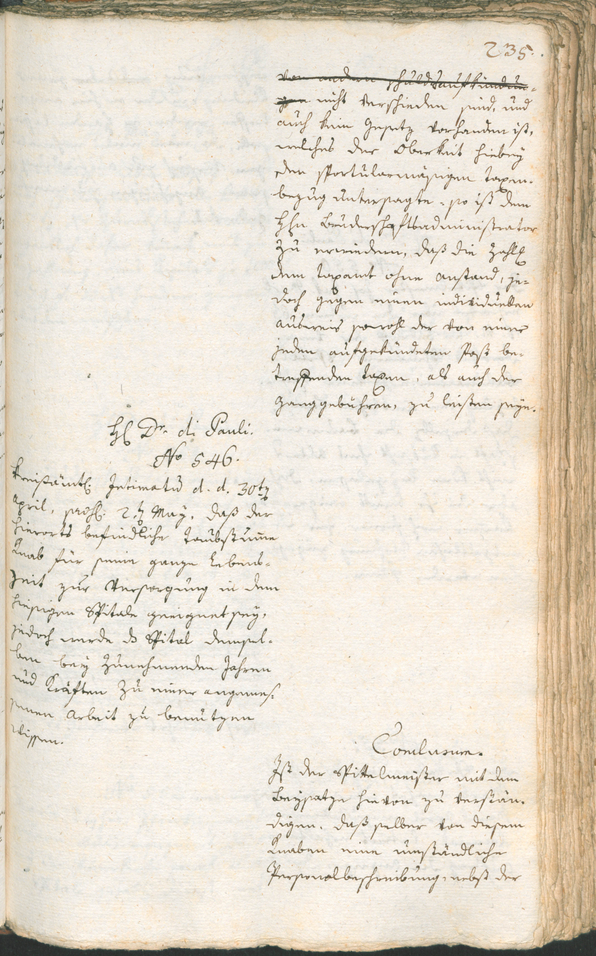 235.
von andern Schuldaufkündun-
gen nicht verschieden sind, und
auch kein Gesetz vorhanden ist,
welches der Obrigkeit hiebey
den sportularmäßigen Taxen-
bezug untersagte, so ist dem
Hhn Bruderschaftsadministrator
zu erwiedern, daß die Zahlg
dem Taxamt ohne Anstand, je-
doch gegen einen individuellen
Ausweis sowohl der von einer
jeden aufgekündeten Post be-
treffenden Taxen, als auch der
Ganggebühren, zu leisten seye.
H Dr. di Pauli.
No 546.
Kreisämtl Intimatum d. d. 30ten
April, praes. 2ten May, daß der
hierorts befindliche Taubstumme
Knab für seine ganze Lebens-
zeit zur Versorgung in dem
hiesigen Spitale geeignet sey,
jedoch werde das Spital densel-
ben bey zunehmenden Jahren
und Kräften zu einer angemes-
senen Arbeit zu benützen
wissen.
Conclusum.
Ist der Spittelmeister mit dem
Beysatze hievon zu verstän-
digen, daß selber von diesem
Knaben eine umständliche
Personalbeschreibung, nebst der